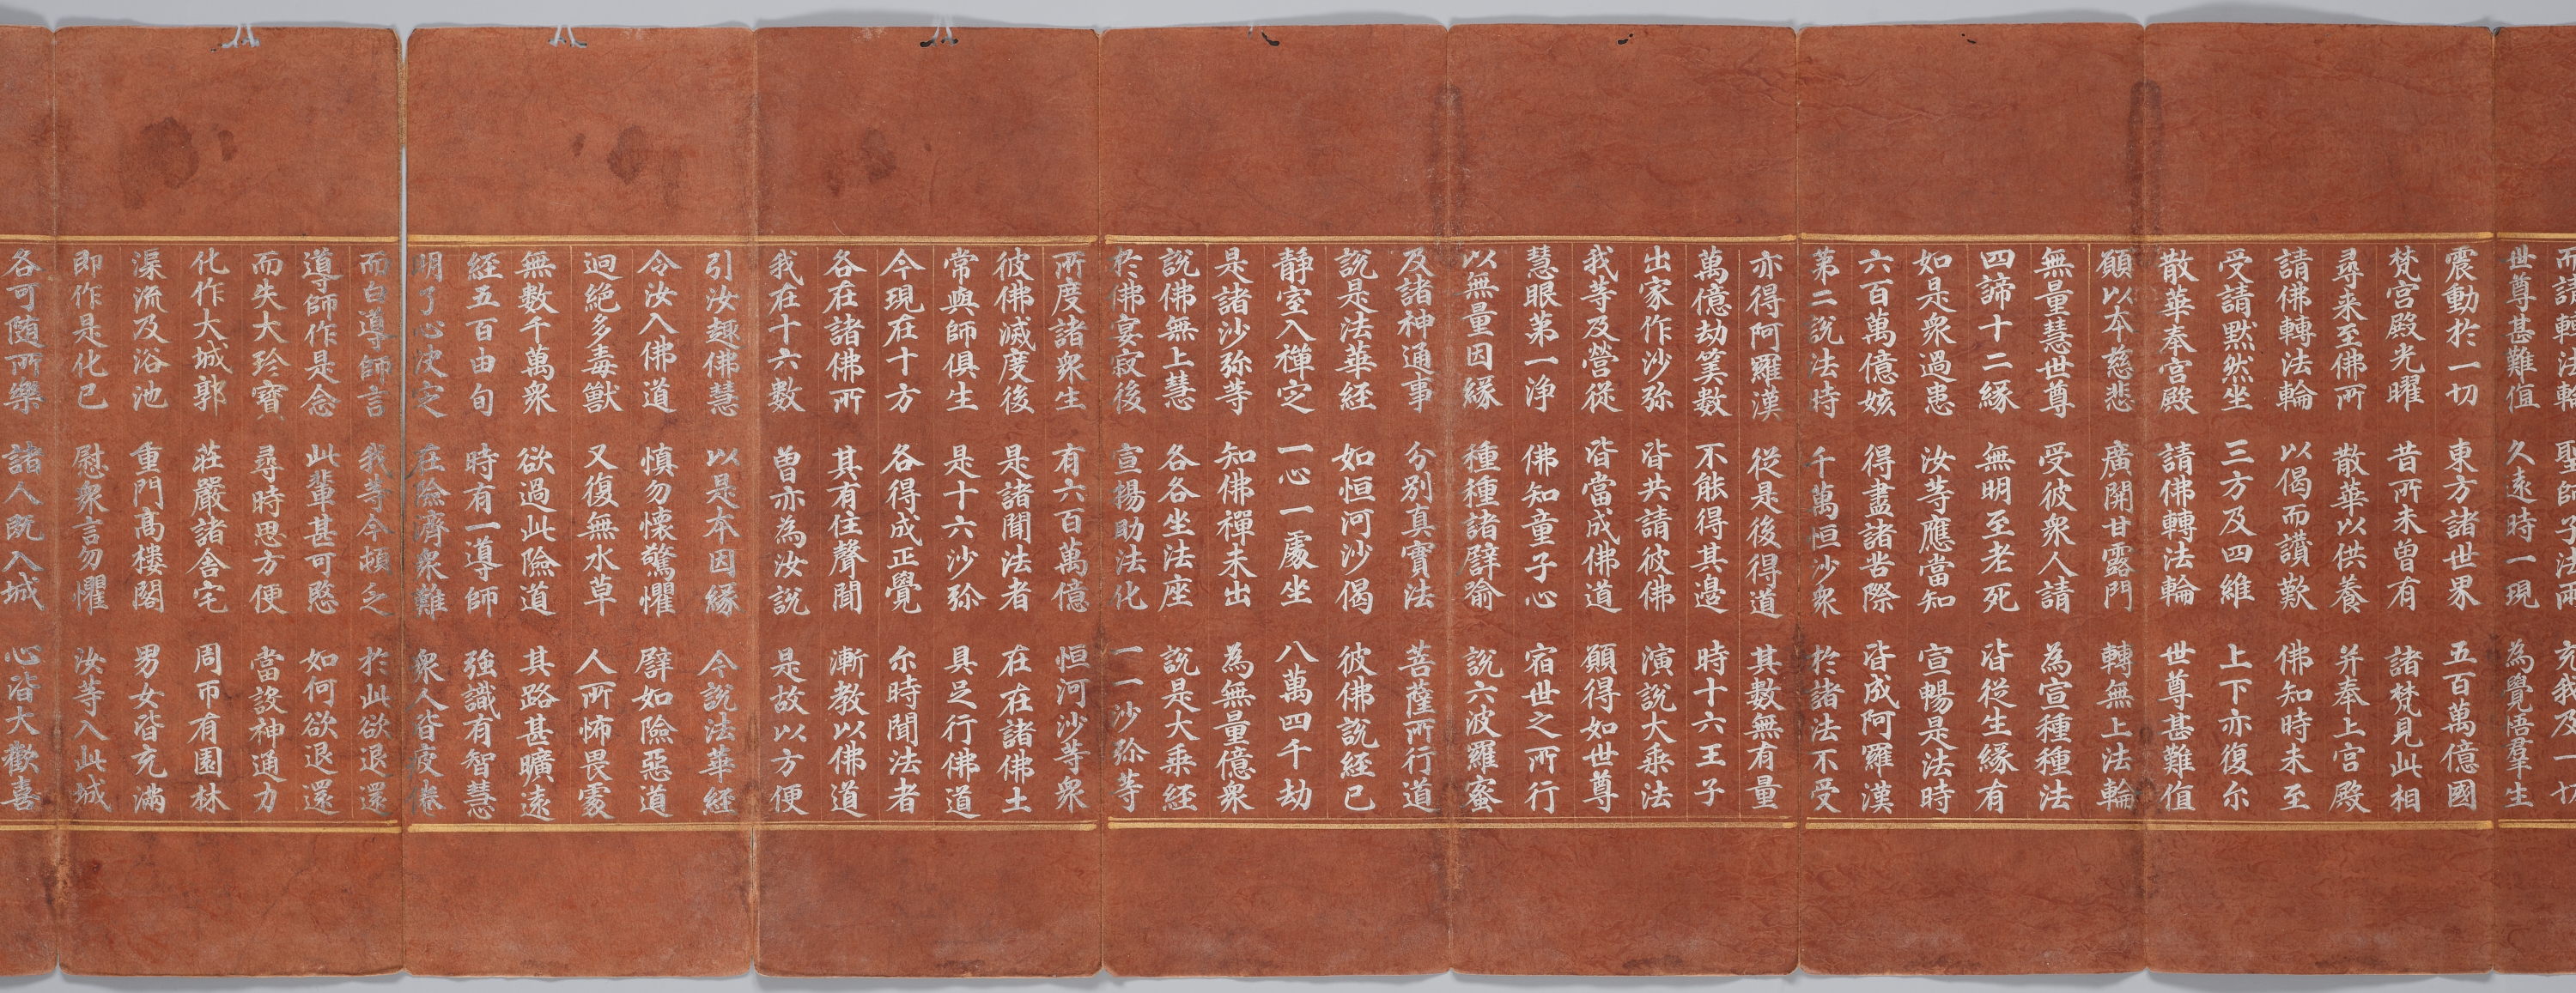 世尊甚難值　久遠時一現　為覺悟羣生
震動於一切　東方諸世界　五百萬億國
梵宮殿光曜　昔所未曾有　諸梵見此相
尋来至佛所　散華以供養　并奉上宮殿
請佛轉法輪　以偈而讃歎　佛知時未至
受請默然坐　三方及四維　上下亦復尒
散華奉宮殿　請佛轉法輪　世尊甚難值
願以本慈悲　廣開甘露門　轉無上法輪
無量慧世尊　受彼衆人請　為宣種種法
四諦十二縁　無明至老死　皆從生縁有
如是衆過患　汝等應當知　宣暢是法時
六百萬億姟　得盡諸苦際　皆成阿羅漢
第二說法時　千萬恒沙衆　於諸法不受
亦得阿羅漢　從是後得道　其數無有量
萬億劫筭數　不能得其邊　時十六王子
出家作沙弥　皆共請彼佛　演說大乘法
我等及營從　皆當成佛道　願得如世尊
慧眼苐一淨　佛知童子心　宿世之所行
以無量因縁　種種諸譬喻　說六波羅蜜
及諸神通事　分別真實法　菩薩所行道
說是法華経　如恒河沙偈　彼佛說経已
静室入禪定　一心一處坐　八萬四千劫
是諸沙弥等　知佛禪未出　為無量億衆
說佛無上慧　各各坐法座　說是大乗経
於佛宴寂後　宣揚助法化　一一沙弥等
所度諸衆生　有六百萬億　恒河沙等衆
彼佛滅度後　是諸聞法者　在在諸佛土
常與師俱生　是十六沙弥　具足行佛道
今現在十方　各得成正覺　尒時聞法者
各在諸佛所　其有住聲聞　漸教以佛道
我在十六數　曽亦為汝說　是故以方便
引汝趣佛慧　以是本因縁　今說法華経
令汝入佛道　慎勿懐驚懼　譬如險惡道
迥絶多毒獸　又復無水草　人所怖畏處
無數千萬衆　欲過此險道　其路甚曠遠
経五百由旬　時有一導師　強識有智慧
明了心决定　在險濟衆難　衆人皆疲倦
而白導師言　我等今頓乏　於此欲退還
導師作是念　此輩甚可愍　如何欲退還
而失大珍寶　尋時思方便　當設神通力
化作大城郭　荘嚴諸舎宅　周帀有園林
渠流及浴池　重門髙樓閣　男女皆充滿
即作是化已　慰衆言勿懼　汝等入此城
各可随所樂　諸人既入城　心皆大歡喜